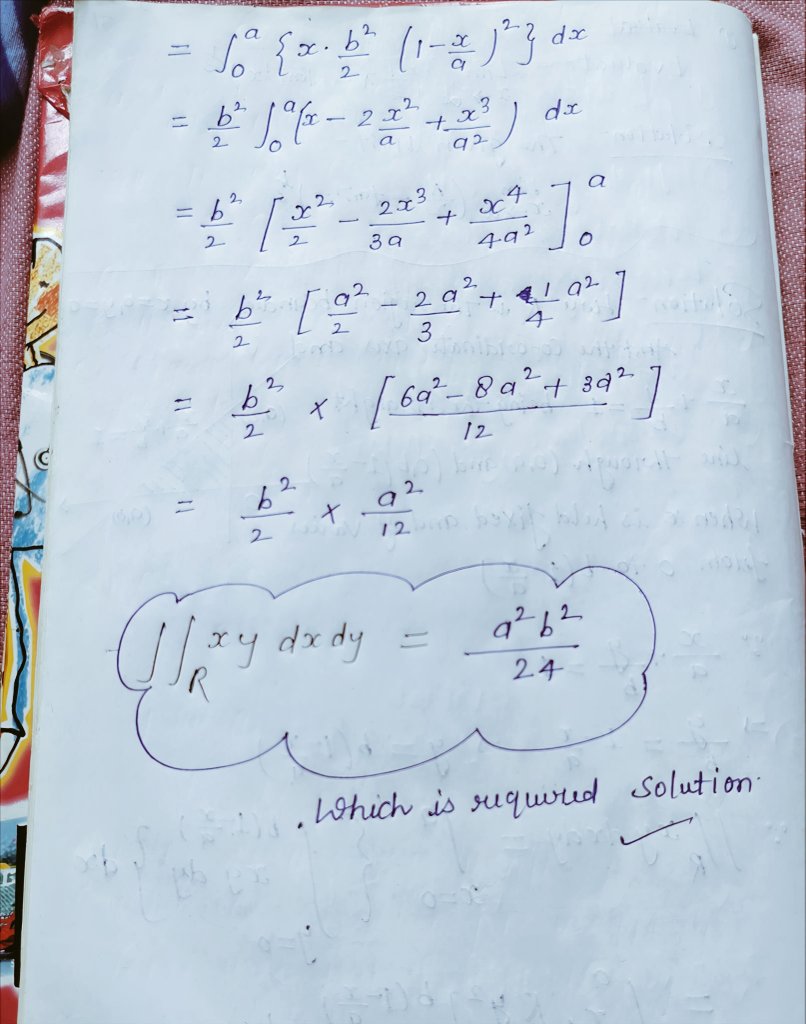 = ∫₀ᵃ {x · b²/2 (1 - x/a)²} dx
= b²/2 ∫₀ᵃ (x - 2 x²/a + x³/a²) dx
= b²/2 [x²/2 - 2x³/3a + x⁴/4a²]₀ᵃ
= b²/2 [a²/2 - 2a²/3 + 1/4 a²]
= b²/2 × [6a² - 8a² + 3a²/12]
= b²/2 × a²/12
∬_R xy dx dy = a²b²/24
. Which is required solution.